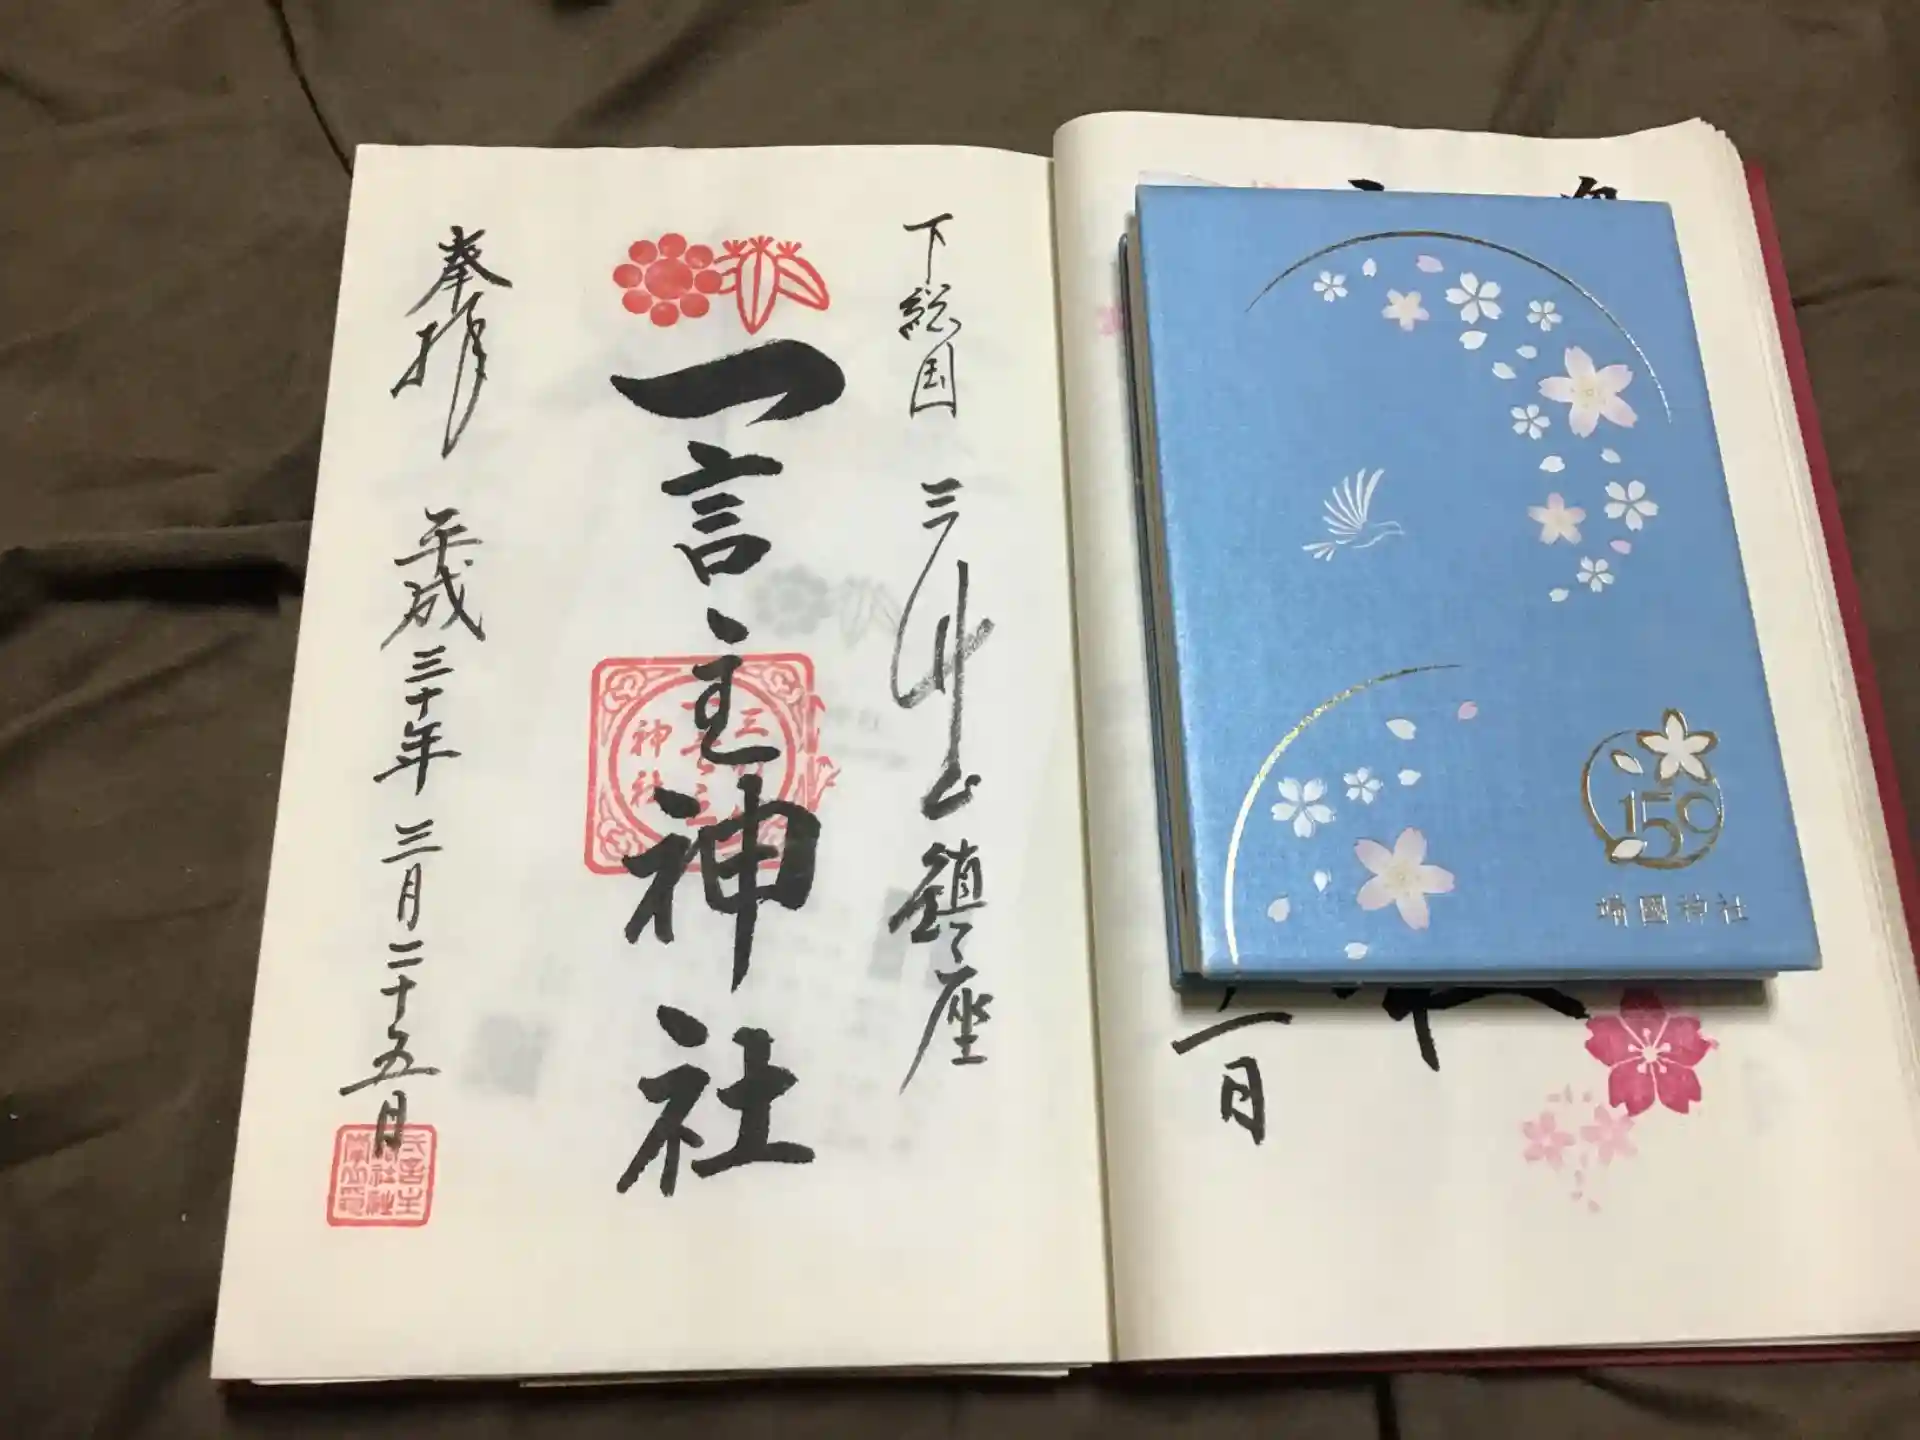 下総国 三竹山鎮座
一言主神社
奉拝 平成三十年 三月二十五日
神社
二日
150
靖國神社